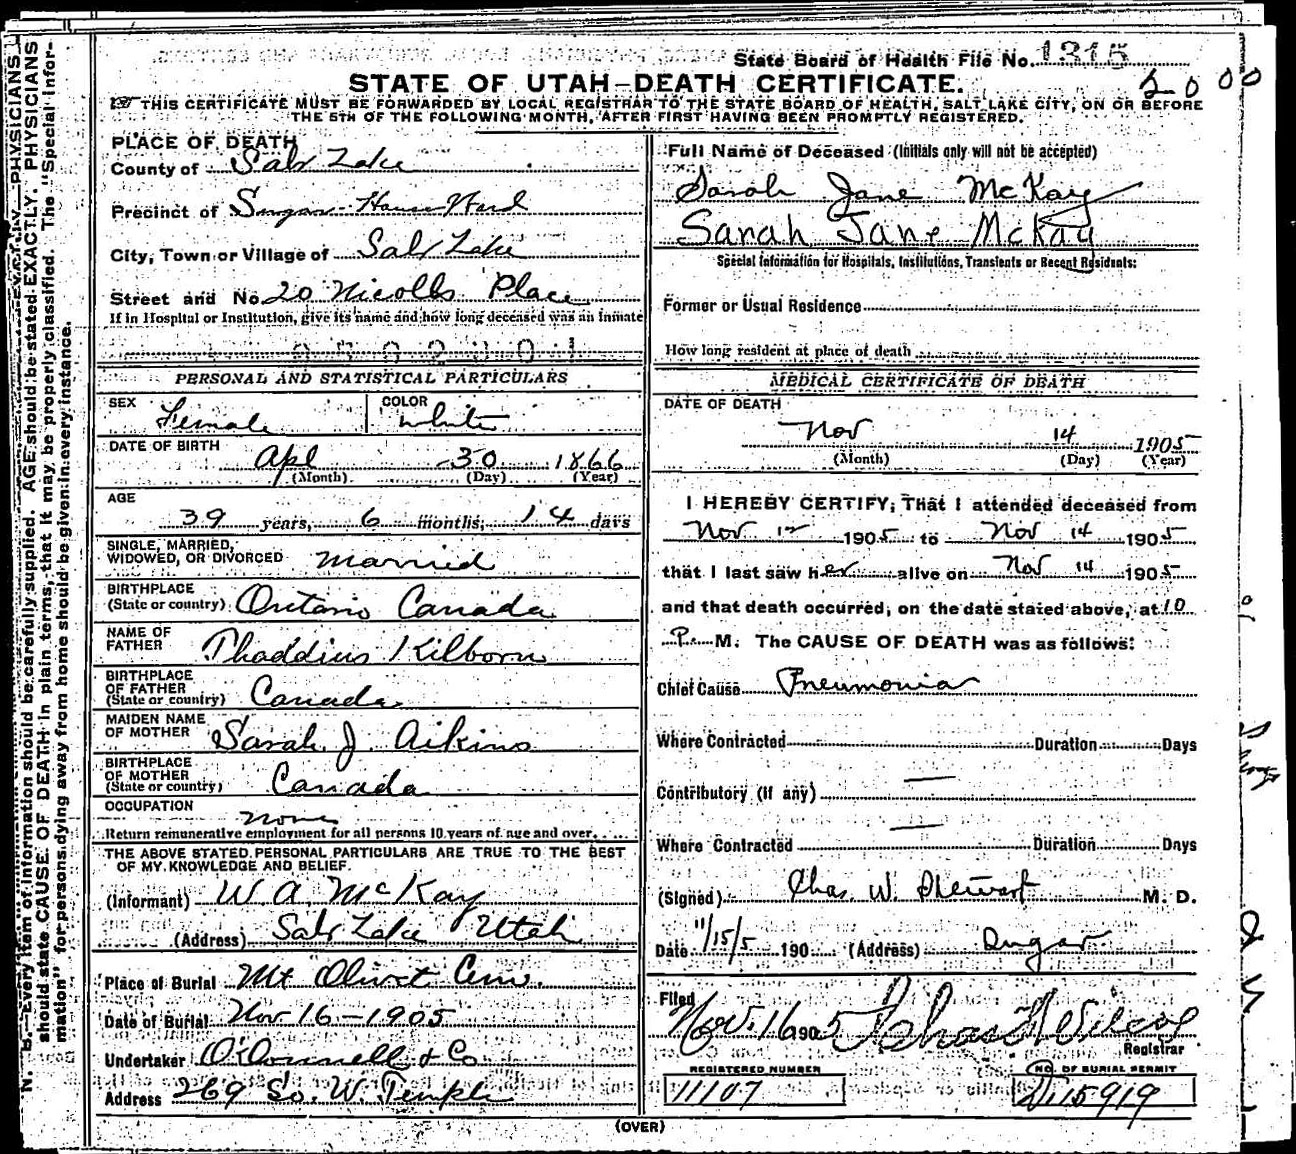 State Board of Health File No. 1315
2000
STATE OF UTAH—DEATH CERTIFICATE.
THIS CERTIFICATE MUST BE FORWARDED BY LOCAL REGISTRAR TO THE STATE BOARD OF HEALTH, SALT LAKE CITY, ON OR BEFORE
THE 5TH OF THE FOLLOWING MONTH, AFTER FIRST HAVING BEEN PROMPTLY REGISTERED.
PLACE OF DEATH
County of Salt Lake
Precinct of Sugar House Ward
City, Town or Village of Salt Lake
Street and No. 20 Nicolls Place
If in Hospital or Institution, give its name and how long deceased was an inmate
0502301
PERSONAL AND STATISTICAL PARTICULARS
SEX Female COLOR White
DATE OF BIRTH Apl 30 1866
(Month) (Day) (Year)
AGE
39 years, 6 months, 14 days
SINGLE, MARRIED,
WIDOWED, OR DIVORCED Married
BIRTHPLACE
(State or country) Ontario Canada
NAME OF
FATHER Thaddius Kilborn
BIRTHPLACE
OF FATHER
(State or country) Canada
MAIDEN NAME
OF MOTHER Sarah J. Aikins
BIRTHPLACE
OF MOTHER
(State or country) Canada
OCCUPATION
none
Return remunerative employment for all persons 10 years of age and over.
THE ABOVE STATED PERSONAL PARTICULARS ARE TRUE TO THE BEST
OF MY KNOWLEDGE AND BELIEF.
(Informant) W. A. McKay
(Address) Salt Lake Utah
Place of Burial Mt Olivet Cem.
Date of Burial Nov 16 - 1905
Undertaker O'Donnell & Co
Address 269 So. W. Temple
Full Name of Deceased (Initials only will not be accepted)
Sarah Jane McKay
Sarah Jane McKay
Special Information for Hospitals, Institutions, Transients or Recent Residents:
Former or Usual Residence
How long resident at place of death
MEDICAL CERTIFICATE OF DEATH
DATE OF DEATH
Nov 14 1905
(Month) (Day) (Year)
I HEREBY CERTIFY, That I attended deceased from
Nov 12 1905 to Nov 14 1905
that I last saw her alive on Nov 14 1905
and that death occurred, on the date stated above, at 10
P. M. The CAUSE OF DEATH was as follows:
Chief Cause Pneumonia
Where Contracted Duration Days
Contributory (if any) —
Where Contracted — Duration Days
(Signed) Chas. W. Stewart M. D.
Date 11/15/5 190 (Address) Sugar
Filed Nov. 16 1905 Chas F Wilcox
Registrar
REGISTERED NUMBER
11107
NO. OF BURIAL PERMIT
D 15919
(OVER)
N. B.—Every item of information should be carefully supplied. AGE should be stated EXACTLY. PHYSICIANS
should state CAUSE OF DEATH in plain terms, that it may be properly classified. The "Special Infor-
mation" for persons dying away from home should be given in every instance.